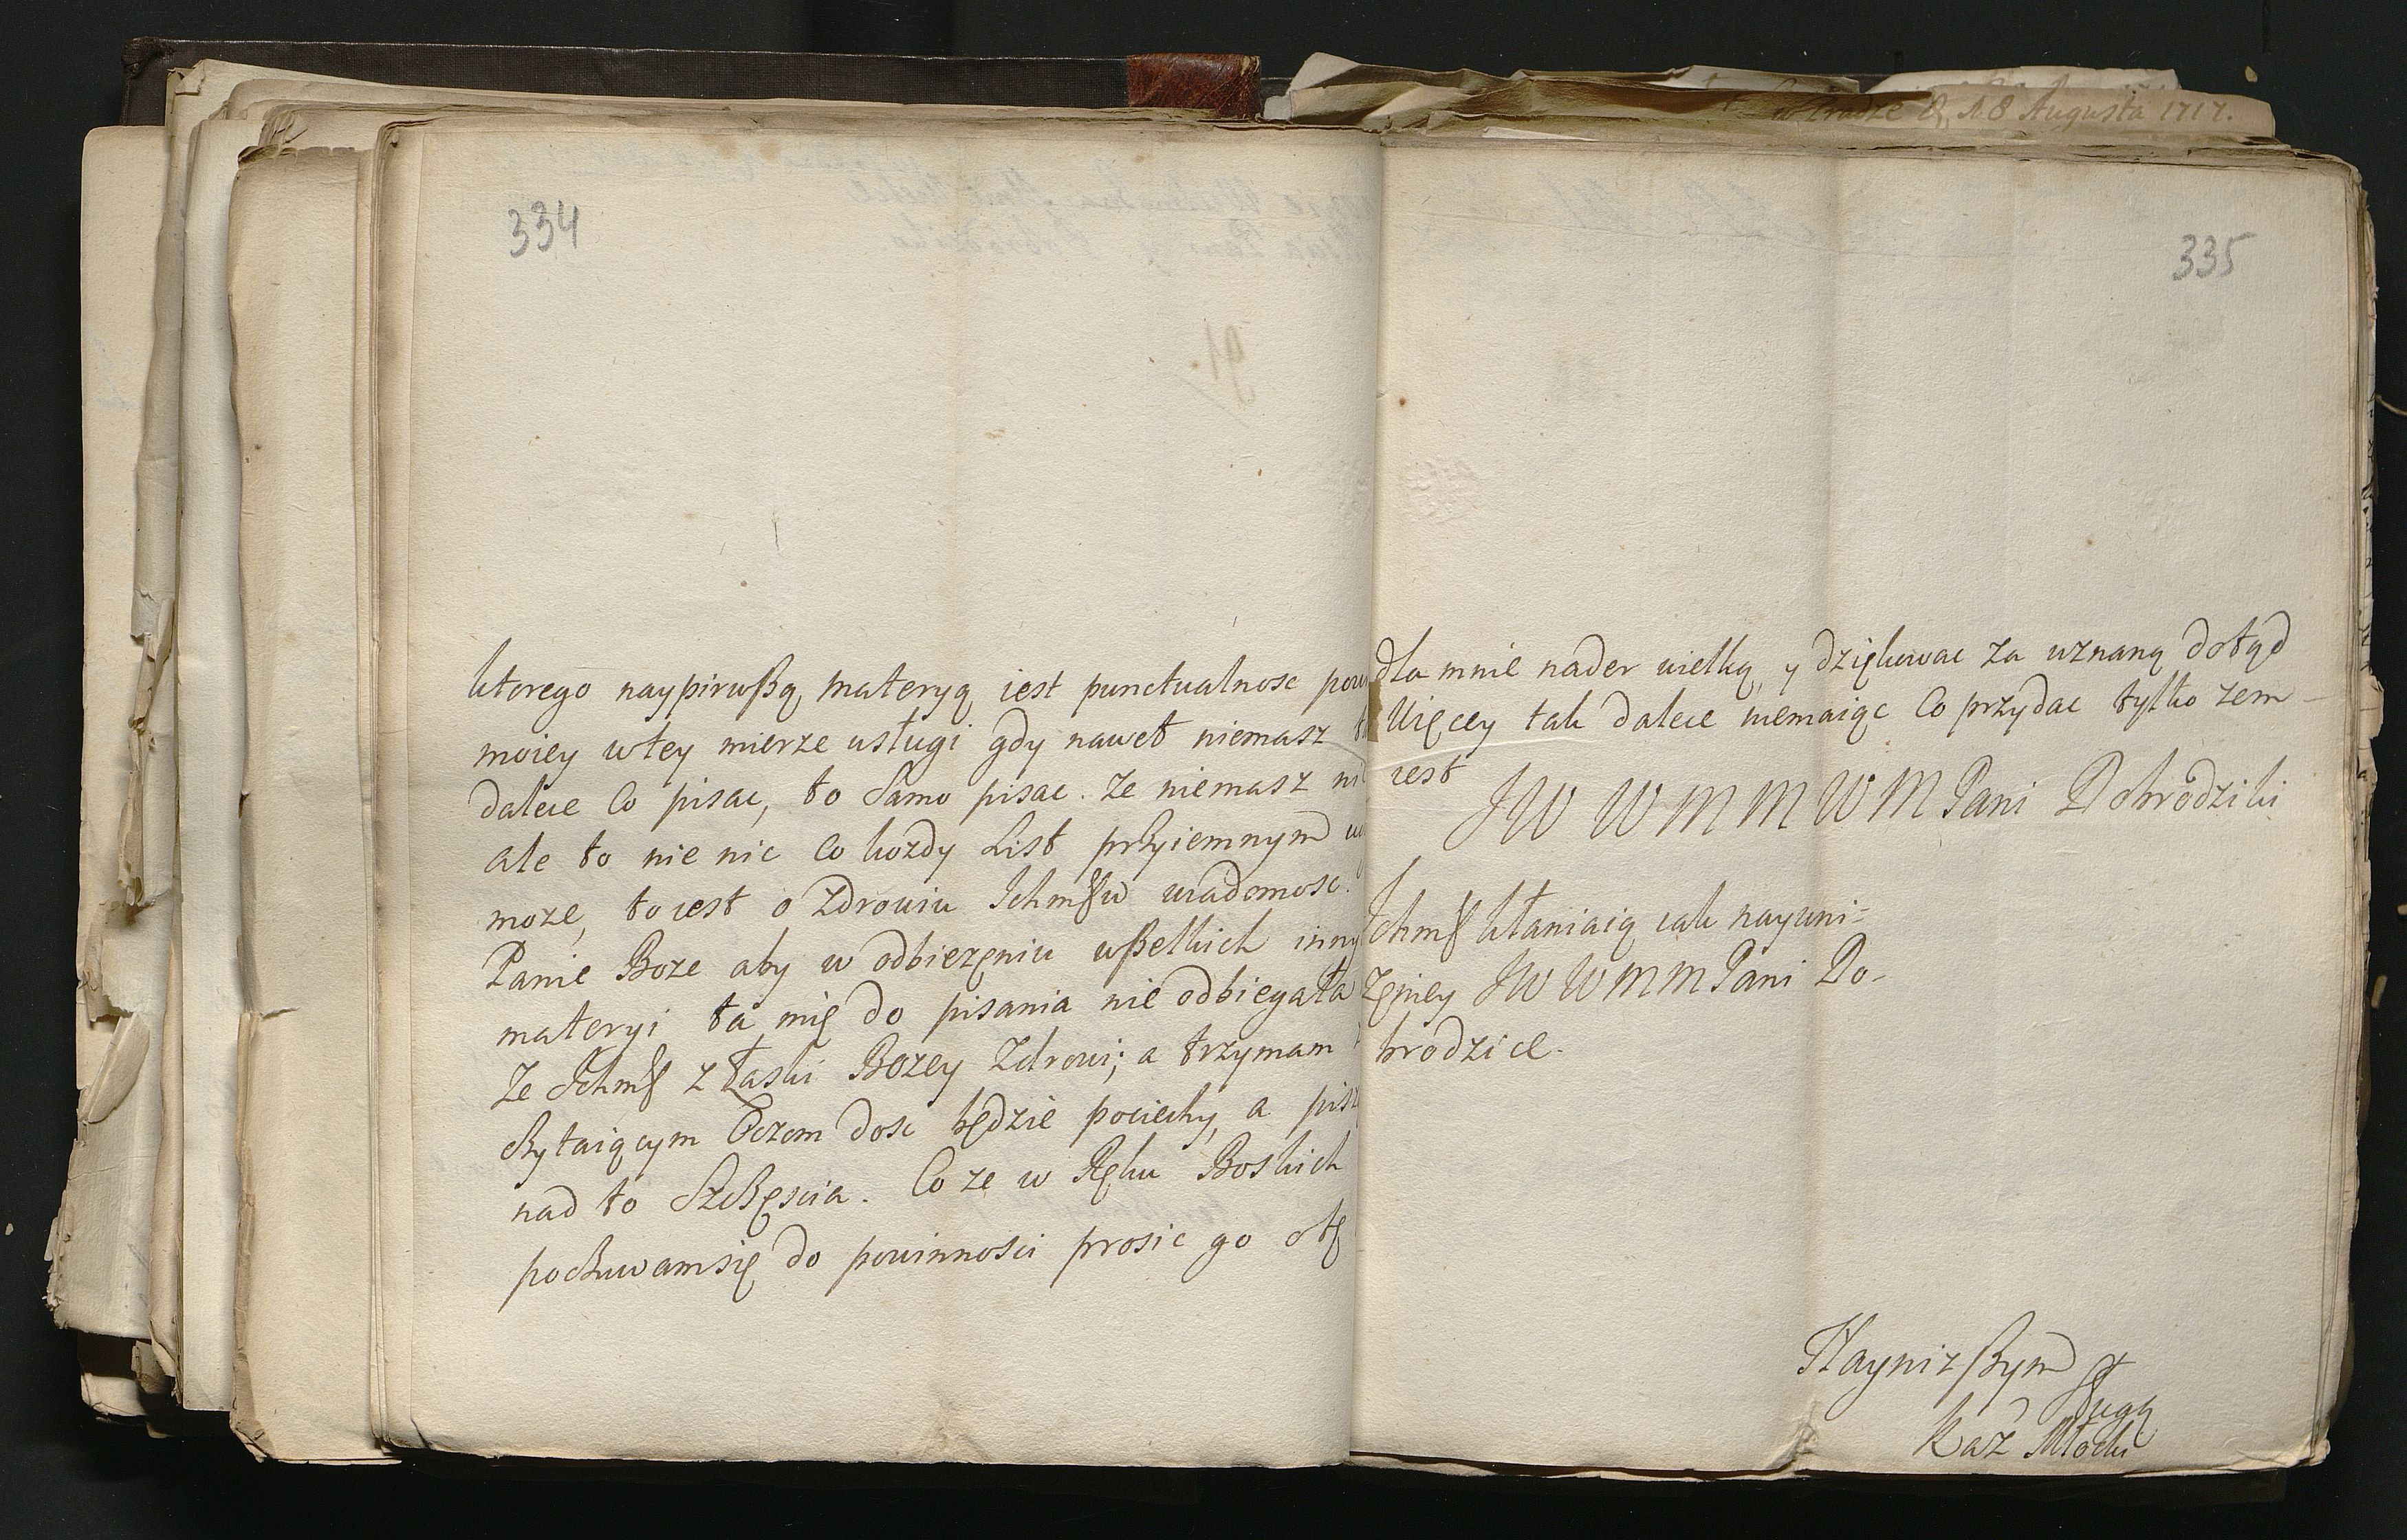 334
ktorego naypirwszą materyą iest punctualnosc
moiey wtey mierze usługi gdy nawet niemasz
dalece Co pisac, to Samo pisac. Ze niemasz
ale to nie nic Co kozdy List przyiemnym
moze, to iest o Zdrowiu Ichmść wiadomosc.
Panie Boze aby w odbiezęniu wszelkich
materyi ta mię do pisania nie odbiegała
Ze Ichmść z Łaski Bozey Zdrowi; a trzymam
czytaiącym Oczom dosc będzie pociechy, a
nad to Szczęscia. Co ze w Ręku Boskich
poczuwamsię do powinnosci prosic go otę
335
dla mnie nader wielką, y dziękowac za uznaną dotąd
Więcey tak dalece niemaiąc Co przydac tylko zem
iest
JW W M M W M Pani Dobrodziki
Ichmść kłaniaią iak nayuni=
zęniey JW W M M Pani Do-
brodzice.
Nayniższym
Sługą
Kaz Młocki
8 Augusta 1717.